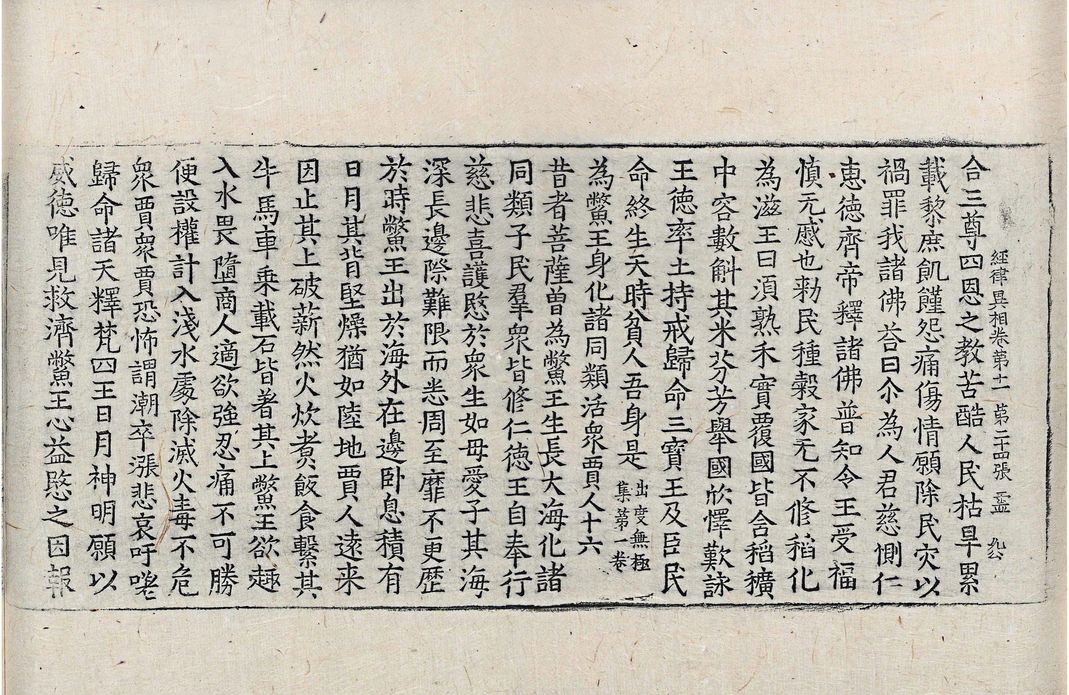 合三尊四恩之教苦酷人民枯旱累
經律異相卷第十一 第二十四張 盃
載黎庶飢饉怨痛傷情願除民灾以
禍罪我諸佛荅曰尒為人君慈惻仁
惠德齊帝釋諸佛普知令王受福
慎无慼也勑民種穀家无不修稻化
為滋王曰湏熟禾實覆國皆含稻穬
中容數斛其米芬芳舉國欣懌歎詠
王德率土持戒歸命三寶王及臣民
命終生天時貧人吾身是 出度無極集第一卷
為鱉王身化諸同類活衆賈人十六
昔者菩薩曽為鱉王生長大海化諸
同類子民羣衆皆修仁德王自奉行
慈悲喜護愍於衆生如母愛子其海
深長邊際難限而悉周至靡不更歷
於時鱉王出於海外在邊卧息積有
日月其背堅燥猶如陸地賈人遠来
因止其上破薪然火炊煮飯食繫其
牛馬車乗載石皆著其上鱉王欲趍
入水畏墮商人適欲強忍痛不可勝
便設權計入淺水處除滅火毒不危
衆賈衆賈恐怖謂潮卒漲悲哀呼嗟
歸命諸天釋梵四王日月神明願以
威德唯見救濟鱉王心益愍之因報